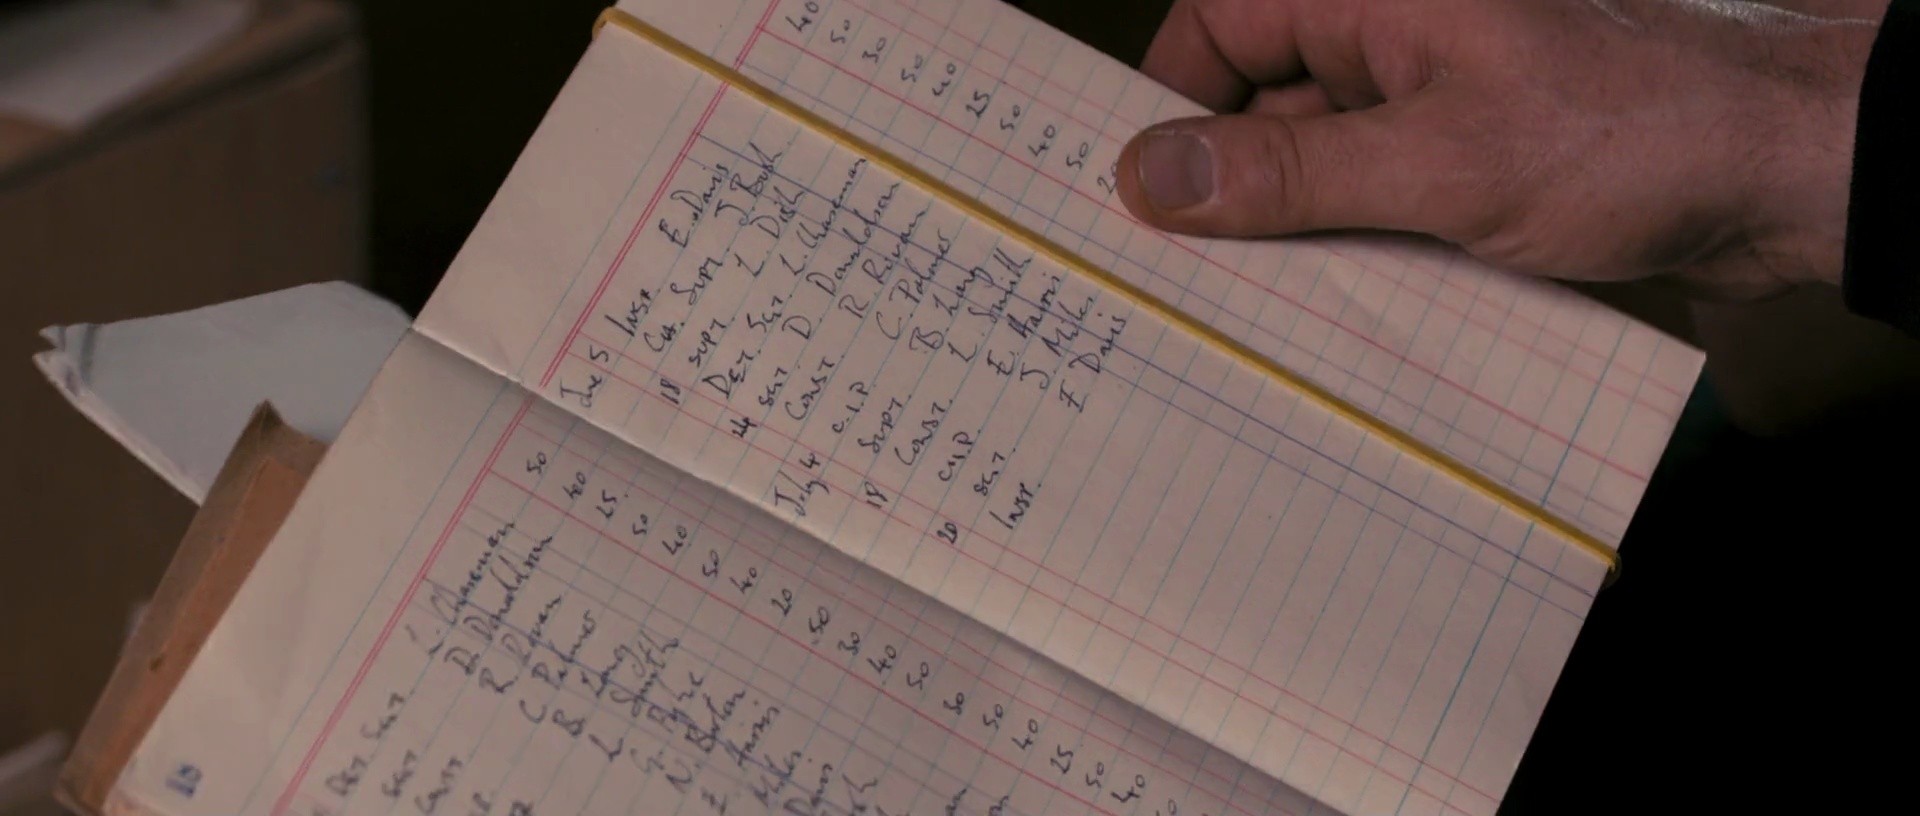 18
Det. Sgt L. Chaseman 50
Sgt D. Donaldson 40
Const R. Rowan 25
C Palmer 50
B. Lang 40
L Smith 50
G. Pyke 40
N. Bolan 20
Harris 50
Miles 30
Davis 40
50
30
50
40
25
50
40
June 5 Insp. E. Davis 40
Ch. Supt. J. Bush 50
18 Supt L. Dish 30
Det. Sgt. L. Chaseman 50
24 Sgt D Donaldson 40
Const. R Rowan 25
July 4 C.I.P. C Palmer 50
Supt. B. Lang 40
18 Const. L Smith 50
C.I.P. E. Harris 20
20 Sgt. J Miles
Insp. F Davis